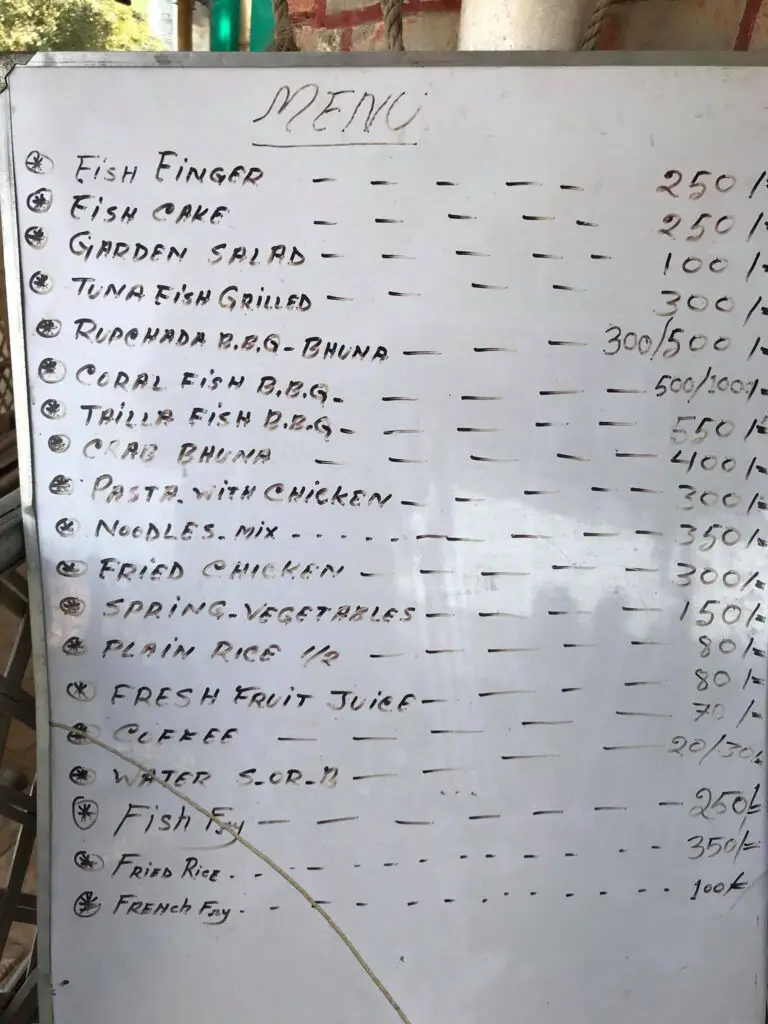 MENU
FISH FINGER - - - - - 250/=
FISH CAKE - - - - - 250/=
GARDEN SALAD - - - - - 100/=
TUNA FISH GRILLED - - - - 300/=
RUPCHADA B.B.Q-BHUNA - - - 300/500/=
CORAL FISH B.B.Q - - - - 500/1000/=
TAILLA FISH B.B.Q - - - - 550/=
CRAB BHUNA - - - - - 400/=
PASTA WITH CHICKEN - - - - 300/=
NOODLES MIX - - - - 350/=
FRIED CHICKEN - - - - - 300/=
SPRING-VEGETABLES - - - - 150/=
PLAIN RICE 1/2 - - - - - 80/=
FRESH FRUIT JUICE - - - - 80/=
COFFEE - - - - - 70/=
WATER S-OR-B - - - - 20/30/=
Fish Fry - - - - - 250/=
FRIED RICE - - - - - 350/=
FRENCH Fry - - - - - 100/=